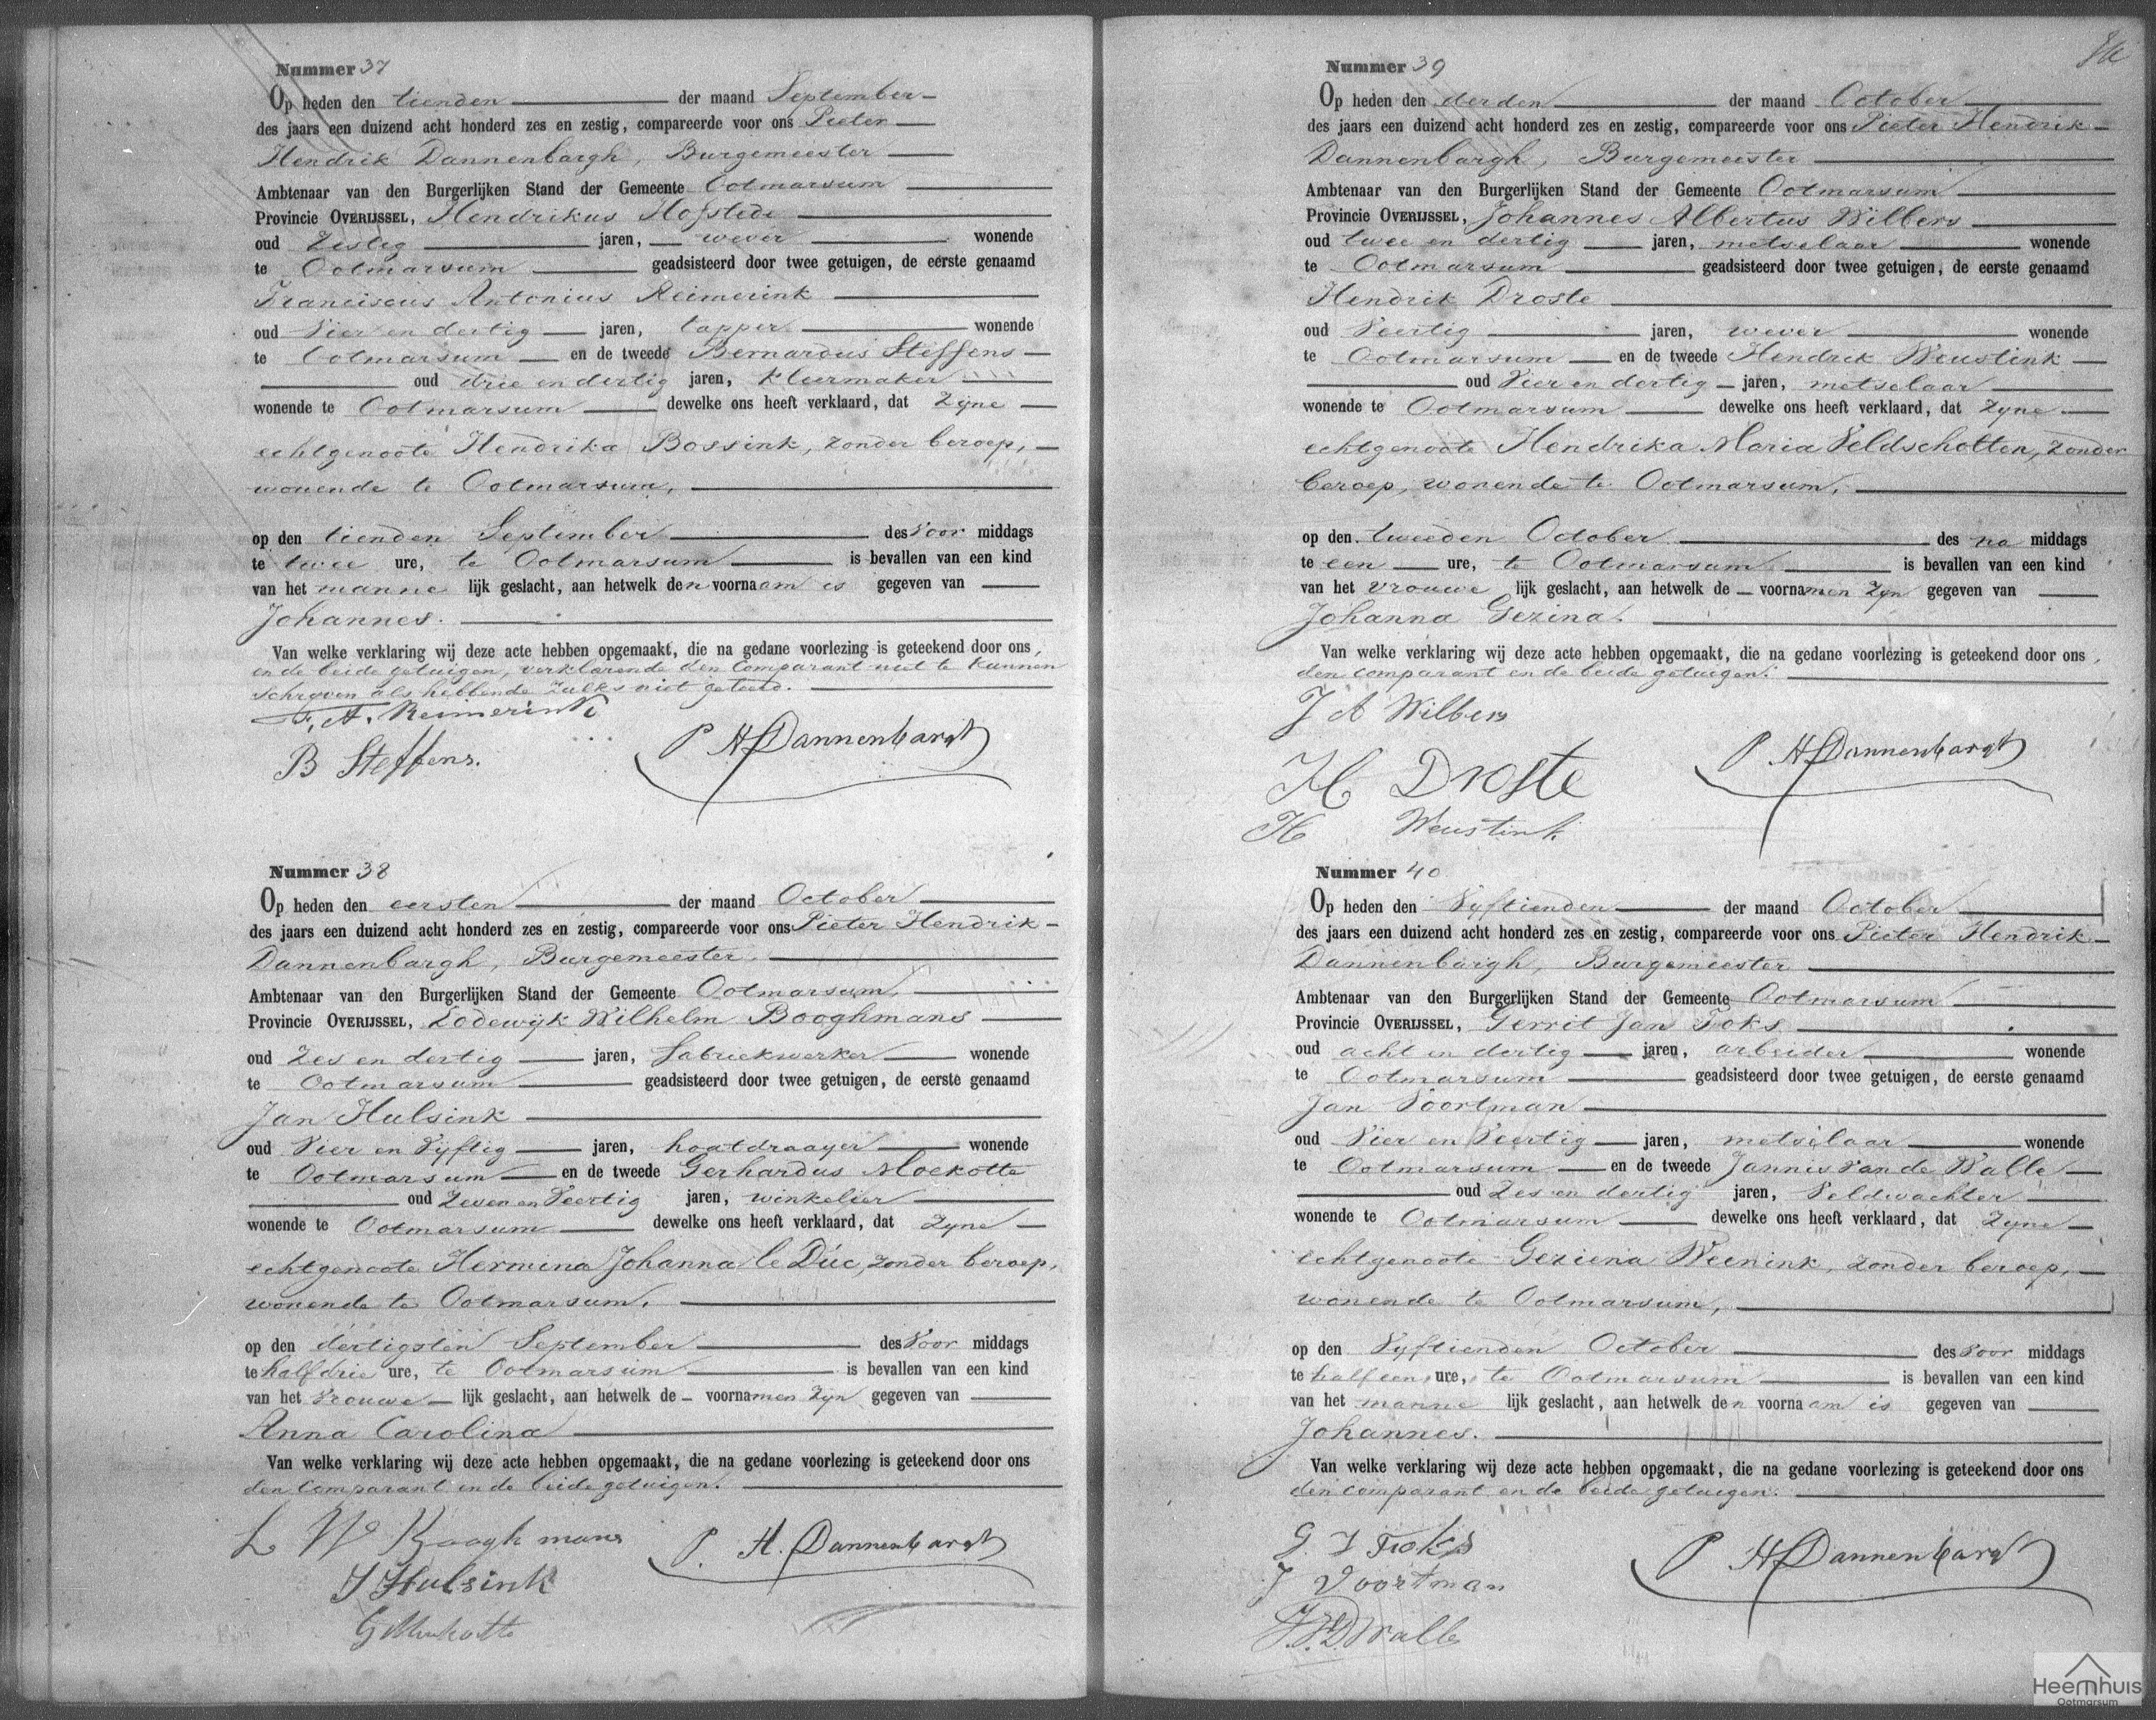 Nummer 37
Op heden den tienden der maand September
des jaars een duizend acht honderd zes en zestig, compareerde voor ons Pieter
Hendrik Dannenbargh, Burgemeester
Ambtenaar van den Burgerlijken Stand der Gemeente Ootmarsum
Provincie OVERIJSSEL, Hendrikus Hofstede
oud Zestig jaren, wever wonende
te Ootmarsum geadsisteerd door twee getuigen, de eerste genaamd
Franciscus Antonius Reimerink
oud Vier en dertig jaren, tapper wonende
te Ootmarsum en de tweede Bernardus Steffens
oud drie en dertig jaren, kleermaker
wonende te Ootmarsum dewelke ons heeft verklaard, dat Zyne
echtgenoote Hendrika Bossink, zonder beroep,
wonende te Ootmarsum,
op den tienden September des Voor middags
te twee ure, te Ootmarsum is bevallen van een kind
van het manne lijk geslacht, aan hetwelk den voornaam is gegeven van
Johannes.
Van welke verklaring wij deze acte hebben opgemaakt, die na gedane voorlezing is geteekend door ons,
en de beide getuigen, verklarende den Comparant niet te kunnen
schryven als hebbende zulks niet geleerd.
F. A. Reimerink
B Steffens.
P H Dannenbargh
Nummer 38
Op heden den eersten der maand October
des jaars een duizend acht honderd zes en zestig, compareerde voor ons Pieter Hendrik
Dannenbargh, Burgemeester
Ambtenaar van den Burgerlijken Stand der Gemeente Ootmarsum
Provincie OVERIJSSEL, Lodewyk Wilhelm Booghmans
oud Zes en dertig jaren, fabriekwerker wonende
te Ootmarsum geadsisteerd door twee getuigen, de eerste genaamd
Jan Hulsink
oud Vier en Vyftig jaren, houtdraayer wonende
te Ootmarsum en de tweede Gerhardus Moekotte
oud Zeven en Veertig jaren, winkelier
wonende te Ootmarsum dewelke ons heeft verklaard, dat Zyne
echtgenoote Hermina Johanna le Duc, zonder beroep,
wonende te Ootmarsum,
op den dertigsten September des Voor middags
te half drie ure, te Ootmarsum is bevallen van een kind
van het Vrouwe lijk geslacht, aan hetwelk de voornamen zyn gegeven van
Anna Carolina
Van welke verklaring wij deze acte hebben opgemaakt, die na gedane voorlezing is geteekend door ons
den Comparant en de beide getuigen.
L W Booghmans
J Hulsink
P. H. Dannenbargh
Nummer 39
Op heden den derden der maand October
des jaars een duizend acht honderd zes en zestig, compareerde voor ons Pieter Hendrik
Dannenbargh, Burgemeester
Ambtenaar van den Burgerlijken Stand der Gemeente Ootmarsum
Provincie OVERIJSSEL, Johannes Albertus Wilbers
oud twee en dertig jaren, metselaar wonende
te Ootmarsum geadsisteerd door twee getuigen, de eerste genaamd
Hendrik Droste
oud Veertig jaren, wever wonende
te Ootmarsum en de tweede Hendrik Weustink
oud Vier en dertig jaren, metselaar
wonende te Ootmarsum dewelke ons heeft verklaard, dat Zyne
echtgenoote Hendrika Maria Veldscholten, zonder
beroep, wonende te Ootmarsum,
op den tweeden October des na middags
te een ure, te Ootmarsum is bevallen van een kind
van het vrouwe lijk geslacht, aan hetwelk de voornamen zyn gegeven van
Johanna Gezina.
Van welke verklaring wij deze acte hebben opgemaakt, die na gedane voorlezing is geteekend door ons,
den comparant en de beide getuigen.
J A Wilbers
H Droste
H Weustink
P H Dannenbargh
Nummer 40
Op heden den Vyftienden der maand October
des jaars een duizend acht honderd zes en zestig, compareerde voor ons Pieter Hendrik
Dannenbargh, Burgemeester
Ambtenaar van den Burgerlijken Stand der Gemeente Ootmarsum
Provincie OVERIJSSEL, Gerrit Jan Foks
oud acht en dertig jaren, arbeider wonende
te Ootmarsum geadsisteerd door twee getuigen, de eerste genaamd
Jan Voortman
oud Vier en Veertig jaren, metselaar wonende
te Ootmarsum en de tweede Jannis Van de Walle
oud Zes en dertig jaren, Veldwachter
wonende te Ootmarsum dewelke ons heeft verklaard, dat Zyne
echtgenoote Geziena Weenink, zonder beroep,
wonende te Ootmarsum,
op den Vyftienden October des Voor middags
te half een ure, te Ootmarsum is bevallen van een kind
van het manne lijk geslacht, aan hetwelk den voornaam is gegeven van
Johannes.
Van welke verklaring wij deze acte hebben opgemaakt, die na gedane voorlezing is geteekend door ons
den comparant en de beide getuigen.
G. J Foks
J Voortman
P H Dannenbargh
Heemhuis
Ootmarsum